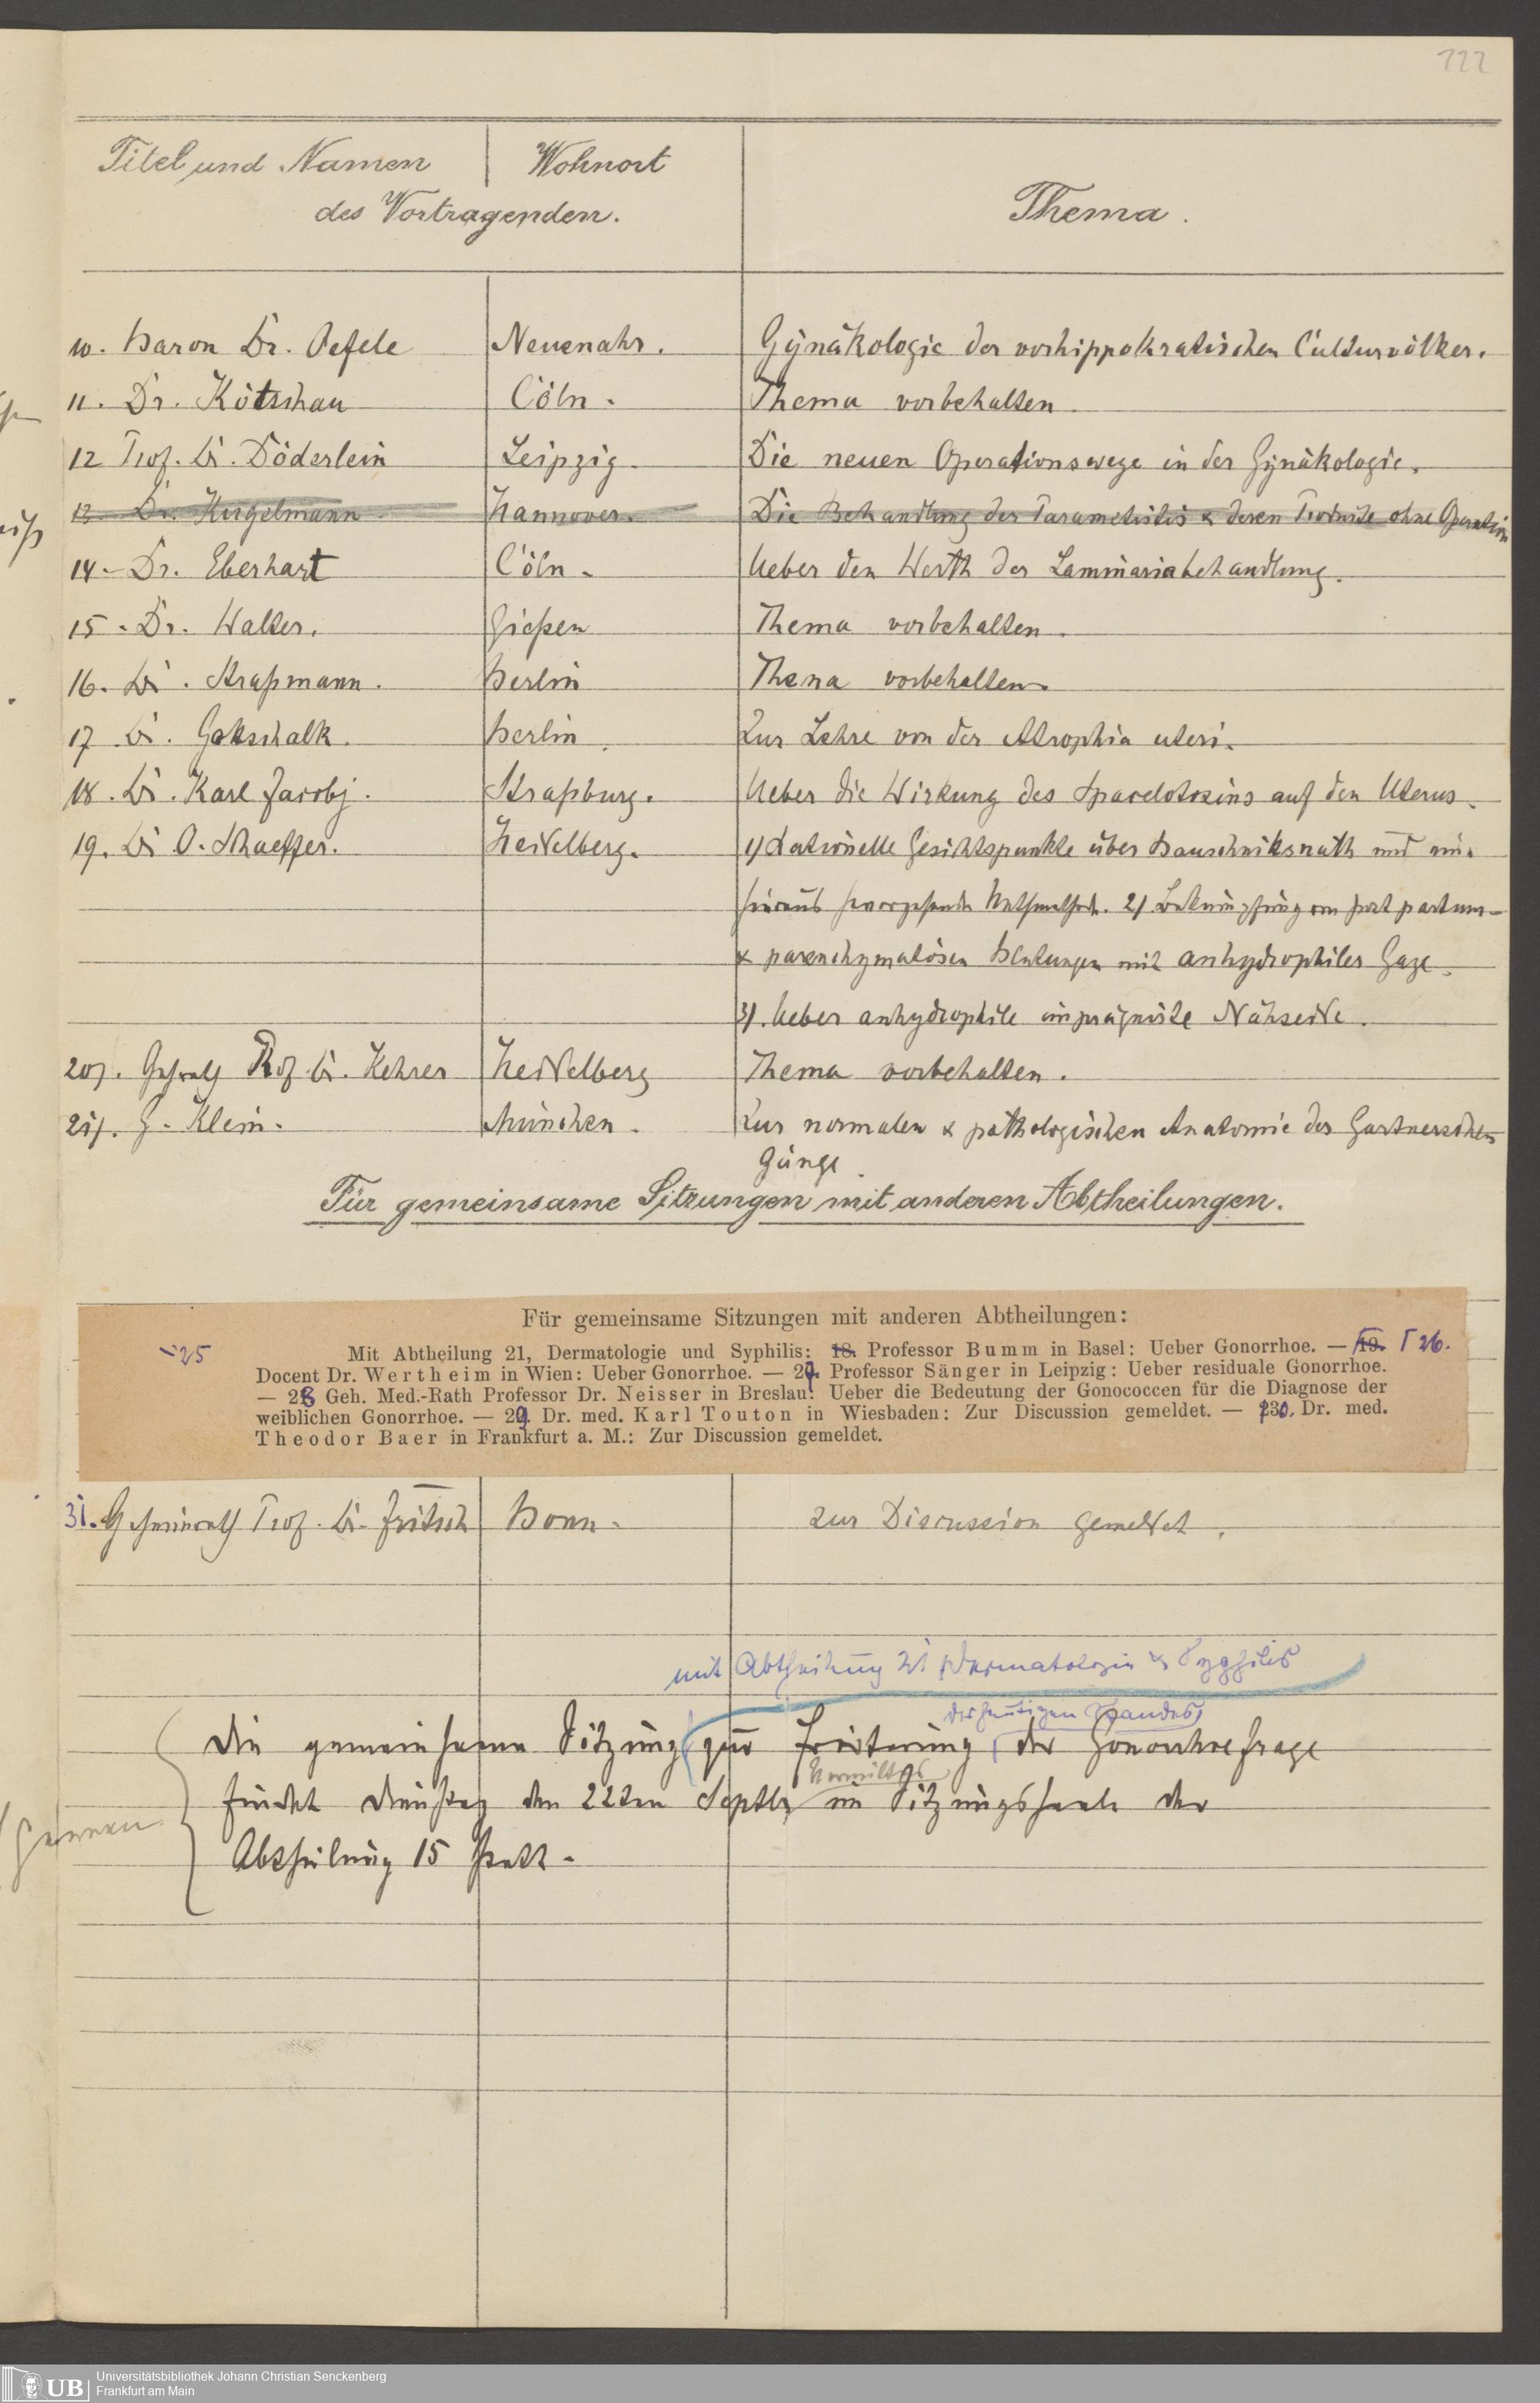 222
Titel und Namen Wohnort
des Vortragenden.
Thema.
10. Baron Dr. Oefele Neuenahr. Gÿnäkologie der vorhippokratischen Culturvölker.
11. Dr. Kötschau Cöln. Thema vorbehalten.
12 Prof. Dr. Döderlein Leipzig. Die neuen Operationswege in der Gÿnäkologie.
13. Dr. Kugelmann Hannover. Die Behandlung der Parametritis & deren Producte ohne Operation
14. Dr. Eberhart Cöln. Ueber den Werth der Laminariabehandlung.
15. Dr. Walter. Gießen Thema vorbehalten.
16. Dr. Straßmann. Berlin Thema vorbehalten.
17. Dr. Gottschalk. Berlin. Zur Lehre von der Atrophia uteri.
18. Dr. Karl Jacobj. Straßburg. Ueber die Wirkung des Spacelotoxins auf den Uterus.
19. Dr O. Schaeffer. Heidelberg. 1) Rationelle Gesichtspunkte über Bauchnitsnath und eine
hieraus hervorgehende Nathmethode. 2) Bekämpfung von post partum-
& parenchymatösen Blutungen mit anhydrophiler Gaze.
3). Ueber anhydrophile imprägnirte Nähseide.
20). Gehrath Prof. Dr. Kehrer Heidelberg Thema vorbehalten.
21). G. Klein. München. Zur normalen & pathologischen Anatomie der Gartnerschen
Gänge.
Für gemeinsame Sitzungen mit anderen Abtheilungen.
Für gemeinsame Sitzungen mit anderen Abtheilungen:
25 Mit Abtheilung 21, Dermatologie und Syphilis: 18. Professor Bumm in Basel: Ueber Gonorrhoe. — 19. 26.
Docent Dr. Wertheim in Wien: Ueber Gonorrhoe. — 27. Professor Sänger in Leipzig: Ueber residuale Gonorrhoe.
— 28 Geh. Med.-Rath Professor Dr. Neisser in Breslau: Ueber die Bedeutung der Gonococcen für die Diagnose der
weiblichen Gonorrhoe. — 29. Dr. med. Karl Touton in Wiesbaden: Zur Discussion gemeldet. — 30. Dr. med.
Theodor Baer in Frankfurt a. M.: Zur Discussion gemeldet.
31. Geheimrath Prof. Dr. Fritsch Bonn. Zur Discussion gemeldet.
mit Abtheilung 21 Dermatologie & Syphilis
des heutigen Standes
Die gemeinsame Sitzung zur Erörterung der Gonorrhoefrage
Vormittags
findet Dienstag den 22ten Septbr im Sitzungssaale der
Abtheilung 15 statt.
UB Universitätsbibliothek Johann Christian Senckenberg
Frankfurt am Main